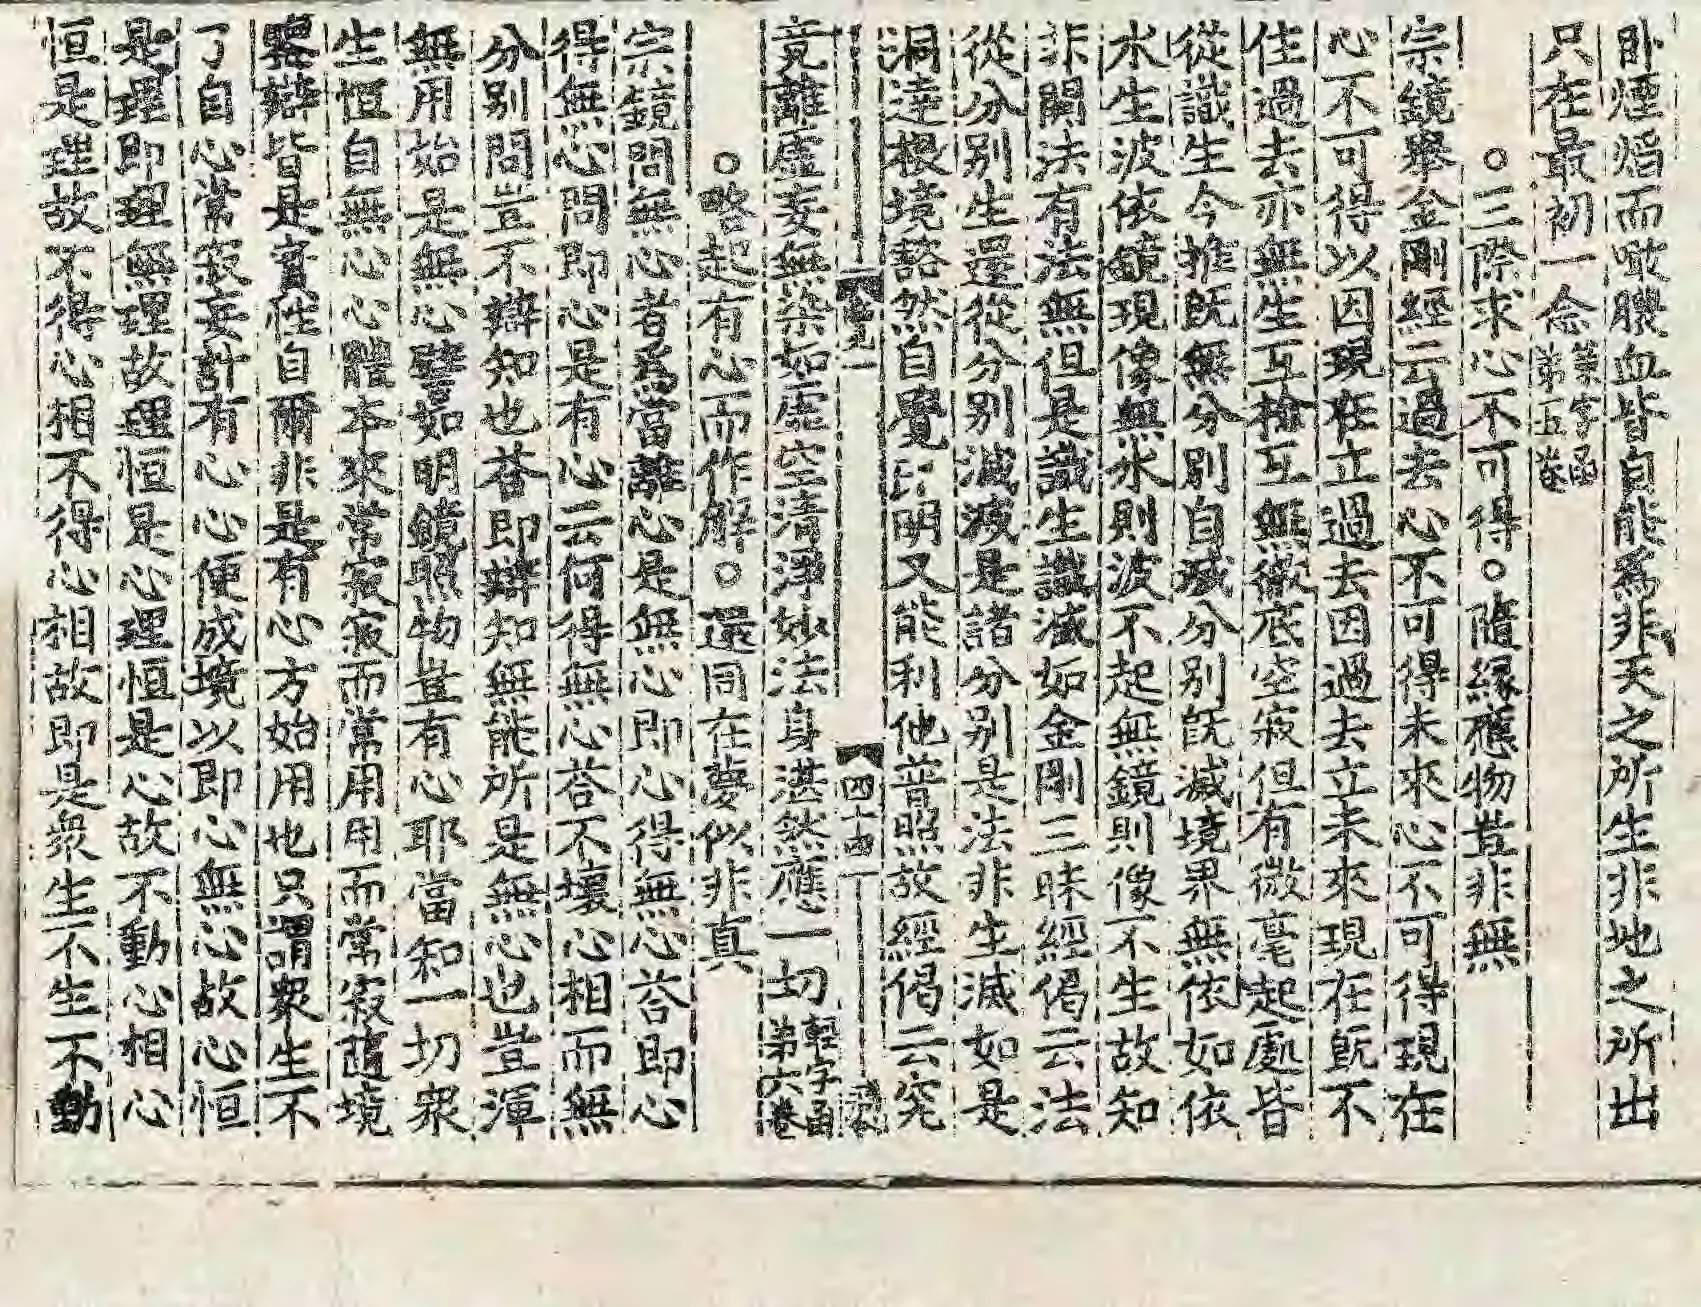 卧煙焰而噉膿血皆自能爲非天之所生非地之所出
只在最初一念業字函第五卷
○三際求心不可得○隨緣應物豈非無
宗鏡舉金剛經云過去心不可得未來心不可得現在
心不可得以因現在立過去因過去立未來現在既不
住過去亦無生互檢互無徹底空寂但有微毫起處皆
從識生今推既無分別自滅分別既滅境界無依如依
水生波依鏡現像無水則波不起無鏡則像不生故知
非關法有法無但是識生識滅如金剛三昧經偈云法
從分別生還從分別滅滅是諸分別是法非生滅如是
洞達根境豁然自覺既明又能利他普照故經偈云究
四十四
竟離虛妄無染如虛空清淨妙法身湛然應一切輕字函第六卷
○略起有心而作解○還同在夢似非真
宗鏡問無心者爲當離心是無心即心得無心荅即心
得無心問即心是有心云何得無心荅不壞心相而無
分別問豈不辯知也荅即辯知無能所是無心也豈渾
無用始是無心譬如明鏡照物豈有心耶當知一切衆
生恒自無心心體本來常寂寂而常用用而常寂隨境
鑒辯皆是實性自爾非是有心方始用也只謂衆生不
了自心常寂妄計有心心便成境以即心無心故心恒
是理即理無理故理恒是心理恒是心故不動心相心
恒是理故不得心相不得心相故即是衆生不生不動